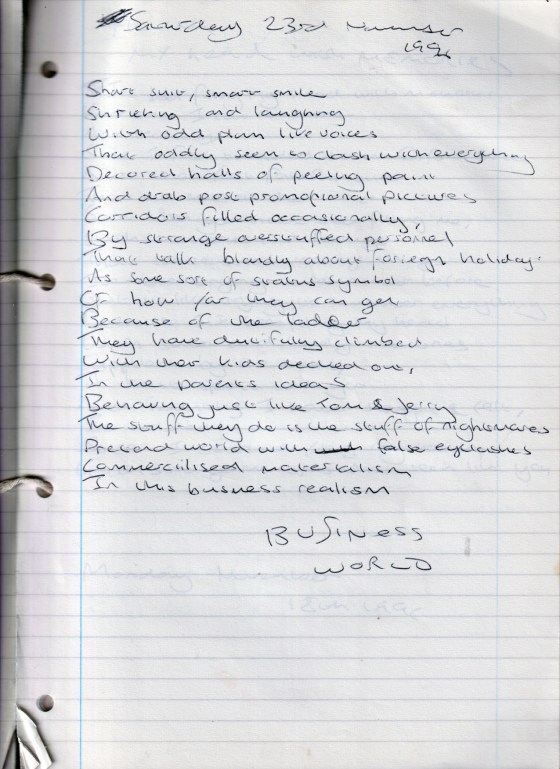 Saturday 23rd November
1996
Sharp suit, smart smile
Shrieking and laughing
With odd plum like voices
That oddly seem to clash with everything
Decored halls of peeling paint
And drab post promotional pictures
Corridors filled occasionally,
By strange overstuffed personnel
That talk blandly about foreign holiday's
As some sort of status symbol
Of how far they can get
Because of the ladder
They have dutifully climbed
With their kids decked out,
In the parents ideas
Behaving just like Tom & Jerry
The stuff they do is the stuff of nightmares
Pretend world with false eyelashes
Commercialised materialism
In this business realism
BUSINESS
WORLD